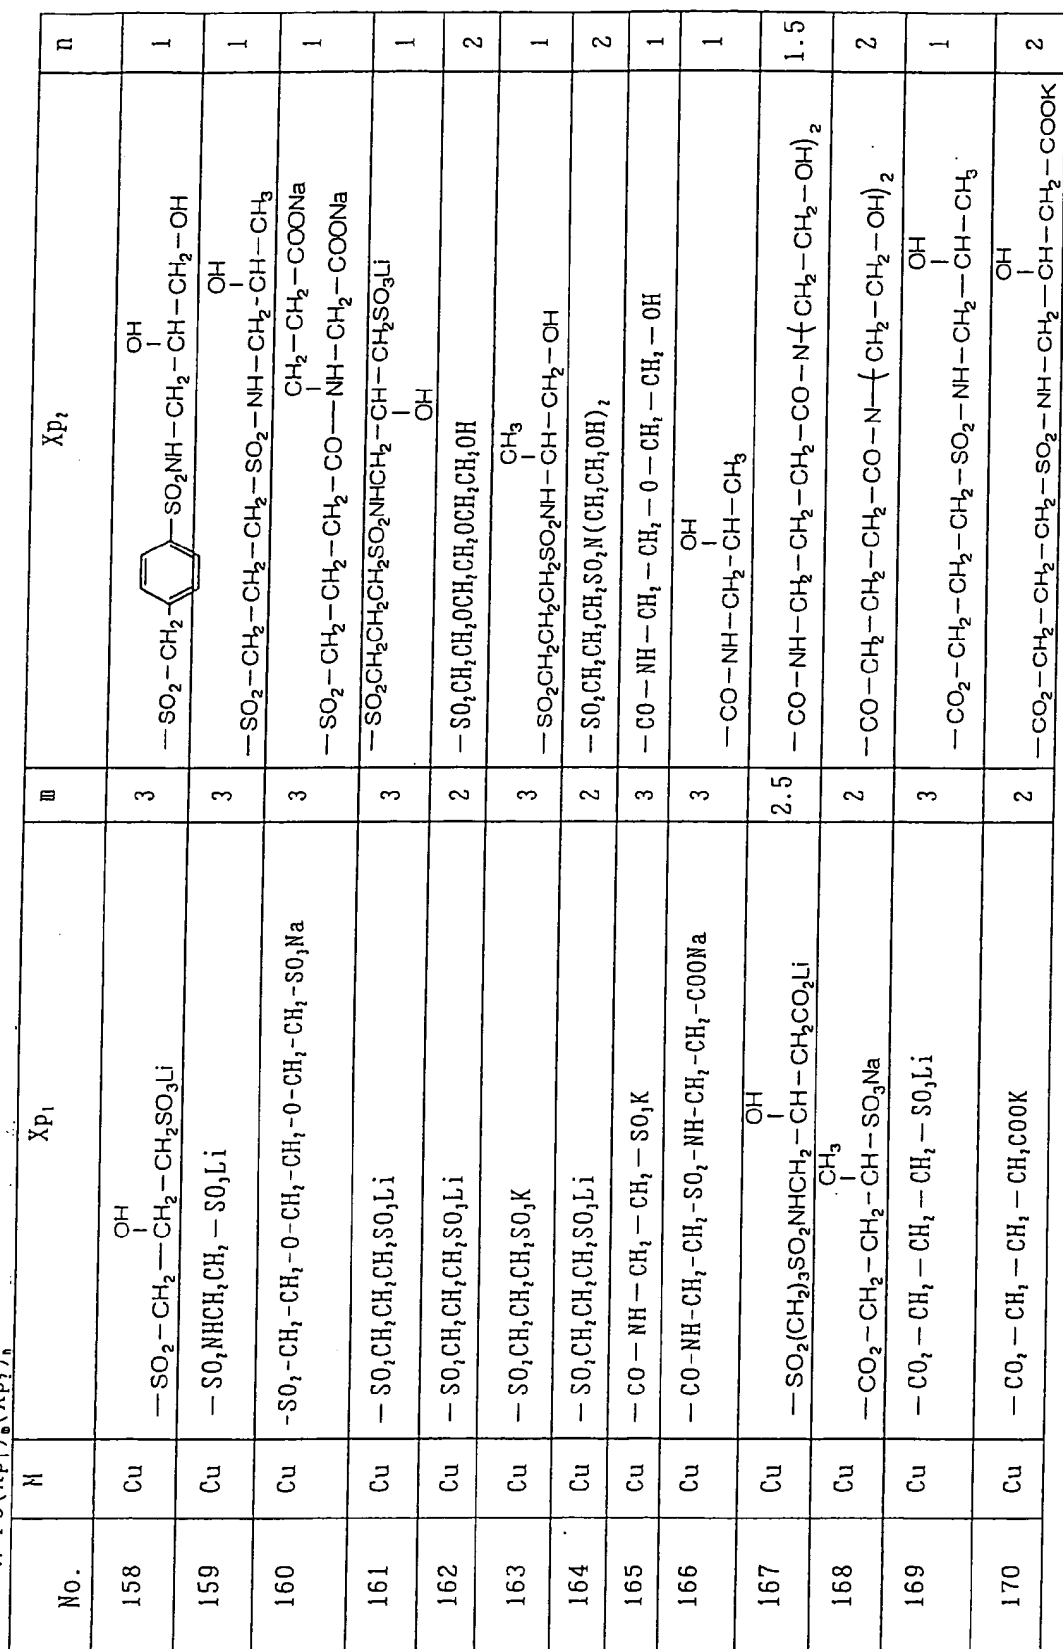 No. M Xp₁ m Xp₂ n
OH
158 Cu —SO₂—CH₂—CH₂—CH₂SO₃Li 3 —SO₂—CH₂— —SO₂NH—CH₂—CH—CH₂—OH 1
OH
OH
159 Cu —SO₂NHCH₂CH₂—SO₃Li 3 —SO₂—CH₂—CH₂—CH₂—SO₂—NH—CH₂—CH—CH₃ 1
CH₂—CH₂—COONa
160 Cu -SO₂-CH₂-CH₂-O-CH₂-CH₂-O-CH₂-CH₂-SO₃Na 3 —SO₂—CH₂—CH₂—CH₂—CO—NH—CH₂—CH₂—COONa 1
161 Cu —SO₂CH₂CH₂CH₂SO₃Li 3 —SO₂CH₂CH₂CH₂SO₂NHCH₂—CH—CH₂SO₃Li 1
OH
162 Cu —SO₂CH₂CH₂CH₂SO₃Li 2 —SO₂CH₂CH₂OCH₂CH₂OCH₂CH₂OH 2
CH₃
163 Cu —SO₂CH₂CH₂CH₂SO₃K 3 —SO₂CH₂CH₂CH₂SO₂NH—CH—CH₂—OH 1
164 Cu —SO₂CH₂CH₂CH₂SO₃Li 2 —SO₂CH₂CH₂CH₂SO₂N(CH₂CH₂OH)₂ 2
165 Cu —CO—NH—CH₂—CH₂—SO₃K 3 —CO—NH—CH₂—CH₂—O—CH₂—CH₂—OH 1
OH
166 Cu —CO-NH-CH₂-CH₂-SO₂-NH-CH₂-CH₂-COONa 3 —CO—NH—CH₂—CH—CH₃ 1
OH
167 Cu —SO₂(CH₂)₃SO₂NHCH₂—CH—CH₂CO₂Li 2.5 —CO—NH—CH₂—CH₂—CH₂—CO—N(CH₂—CH₂—OH)₂ 1.5
CH₃
168 Cu —CO₂—CH₂—CH₂—CH—SO₃Na 2 —CO—CH₂—CH₂—CH₂—CO—N—(CH₂—CH₂—OH)₂ 2
OH
169 Cu —CO₂—CH₂—CH₂—CH₂—SO₃Li 3 —CO₂—CH₂—CH₂—CH₂—SO₂—NH—CH₂—CH—CH₃ 1
OH
170 Cu —CO₂—CH₂—CH₂—CH₂COOK 2 —CO₂—CH₂—CH₂—CH₂—SO₂—NH—CH₂—CH—CH₂—COOK 2